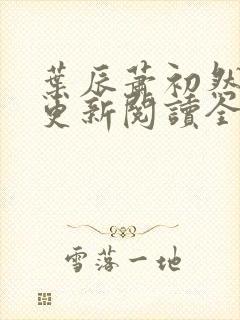 葉辰蕭初然
更新閱讀全
雪落一地